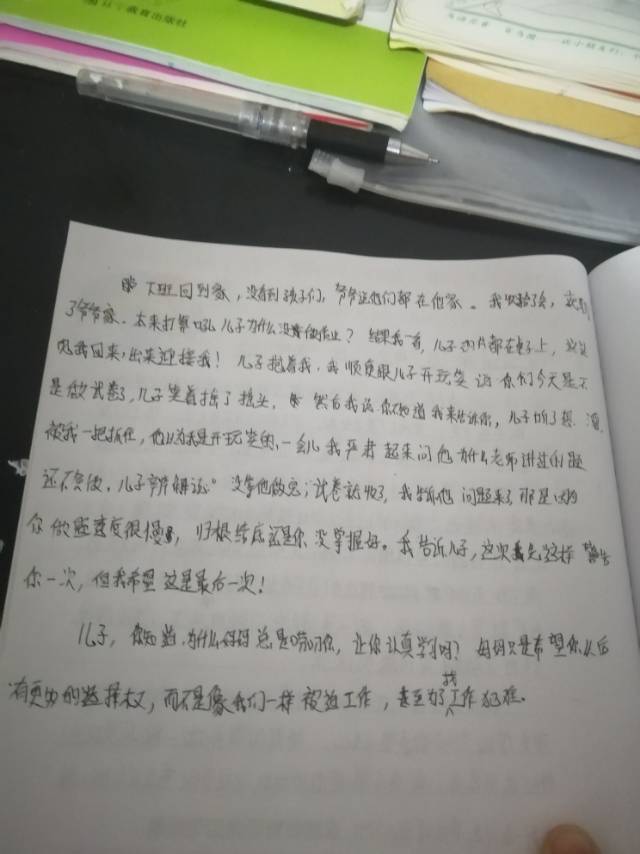 教育出版社
下班回到家，没看到孩子们，爷爷说他们都在他家。我
了爷爷家。本来打算吼儿子为什么没有做作业？结果我一看，儿子的都在桌上，
见我回来，出来迎接我！儿子抱着我，我顺便跟儿子开玩笑说你们今天是不
是做试卷了，儿子笑着摇了摇头，然后我说你不知道我来告诉你，儿子听了想溜
被我一把抓住，他以为我是开玩笑的，一会儿我严肃起来问他为什么老师讲过的题
还不会做，儿子辩解说"没等他做完，试卷就收了，我告诉他问题来了，那是因为
你做题速度很慢，归根结底还是你没掌握好。我告诉儿子，这次我先这样警告
你一次，但我希望这是最后一次！
儿子，你知道为什么妈妈总是唠叨你，让你认真学习吗？妈妈只是希望你以后
有更多的选择权，而不是像我们一样被迫工作，甚至为了找工作犯难。